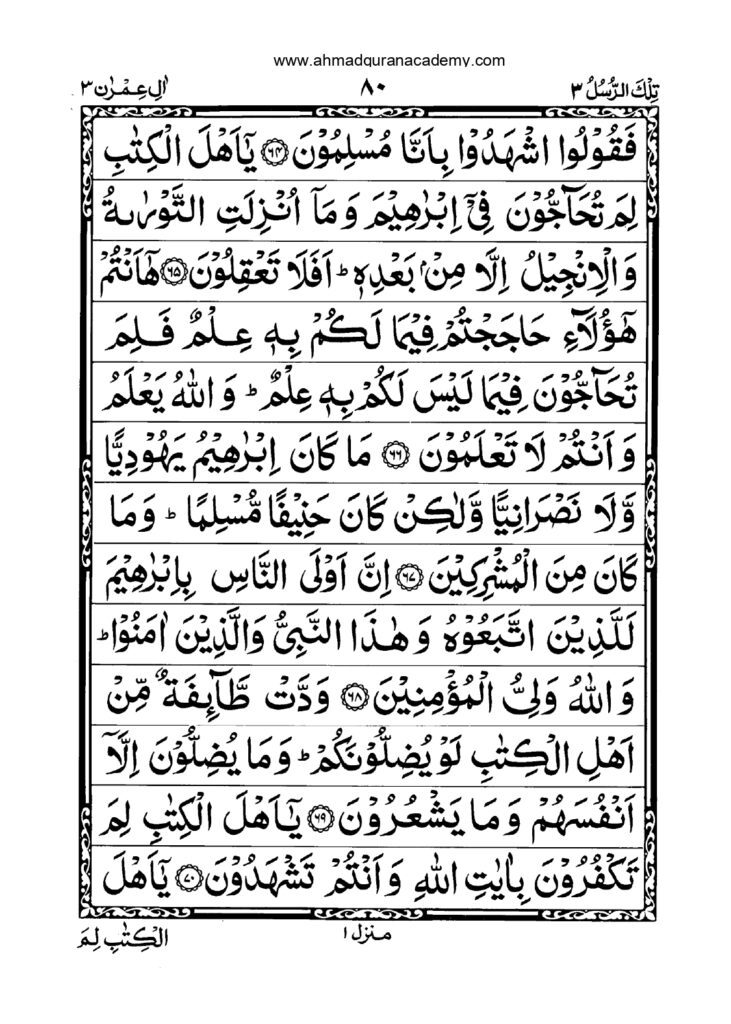 www.ahmadquranacademy.com
تِلْكَ الرُّسُلُ ٣ ٨٠ اٰلِ عِمْرٰن ٣
فَقُوْلُوا اشْهَدُوْا بِاَنَّا مُسْلِمُوْنَ ۝٦٤ يٰۤاَهْلَ الْكِتٰبِ
لِمَ تُحَآجُّوْنَ فِيْۤ اِبْرٰهِيْمَ وَ مَاۤ اُنْزِلَتِ التَّوْرٰىةُ
وَ الْاِنْجِيْلُ اِلَّا مِنْۢ بَعْدِهٖ ؕ اَفَلَا تَعْقِلُوْنَ ۝٦٥ هٰۤاَنْتُمْ
هٰۤؤُلَآءِ حَاجَجْتُمْ فِيْمَا لَكُمْ بِهٖ عِلْمٌ فَلِمَ
تُحَآجُّوْنَ فِيْمَا لَيْسَ لَكُمْ بِهٖ عِلْمٌ ؕ وَ اللّٰهُ يَعْلَمُ
وَ اَنْتُمْ لَا تَعْلَمُوْنَ ۝٦٦ مَا كَانَ اِبْرٰهِيْمُ يَهُوْدِيًّا
وَّ لَا نَصْرَانِيًّا وَّ لٰكِنْ كَانَ حَنِيْفًا مُّسْلِمًا ؕ وَ مَا
كَانَ مِنَ الْمُشْرِكِيْنَ ۝٦٧ اِنَّ اَوْلَى النَّاسِ بِاِبْرٰهِيْمَ
لَلَّذِيْنَ اتَّبَعُوْهُ وَ هٰذَا النَّبِيُّ وَ الَّذِيْنَ اٰمَنُوْا ؕ
وَ اللّٰهُ وَلِيُّ الْمُؤْمِنِيْنَ ۝٦٨ وَدَّتْ طَّآئِفَةٌ مِّنْ
اَهْلِ الْكِتٰبِ لَوْ يُضِلُّوْنَكُمْ ؕ وَ مَا يُضِلُّوْنَ اِلَّاۤ
اَنْفُسَهُمْ وَ مَا يَشْعُرُوْنَ ۝٦٩ يٰۤاَهْلَ الْكِتٰبِ لِمَ
تَكْفُرُوْنَ بِاٰيٰتِ اللّٰهِ وَ اَنْتُمْ تَشْهَدُوْنَ ۝٧٠ يٰۤاَهْلَ
منزل ١
الْكِتٰبِ لِمَ